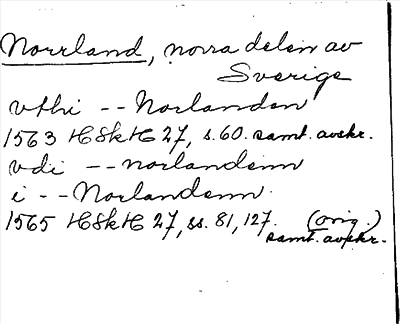 Norrland, norra delen av
Sverige
vthi -- Norlanden
1563 HSkH 27, s. 60. samt. avskr.
vdi -- norlandenn
i -- Norlandenn.
1565 HSkH 27, ss. 81, 127. (orig.)
samt. avskr.